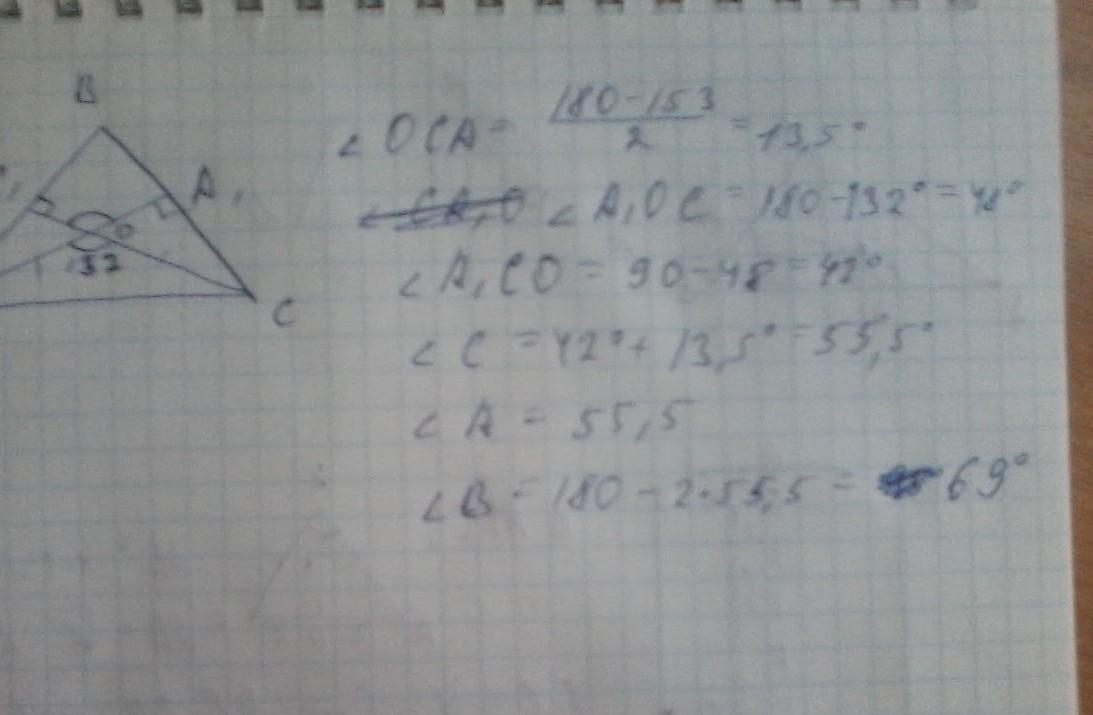 B
A₁
O
132
C
∠ OCA = (180 - 153)/2 = 13,5°
∠ CA₁O ∠ A₁OC = 180 - 132° = 48°
∠ A₁CO = 90 - 48 = 42°
∠ C = 42° + 13,5° = 55,5°
∠ A = 55,5
∠ B = 180 - 2·55,5 = 69°